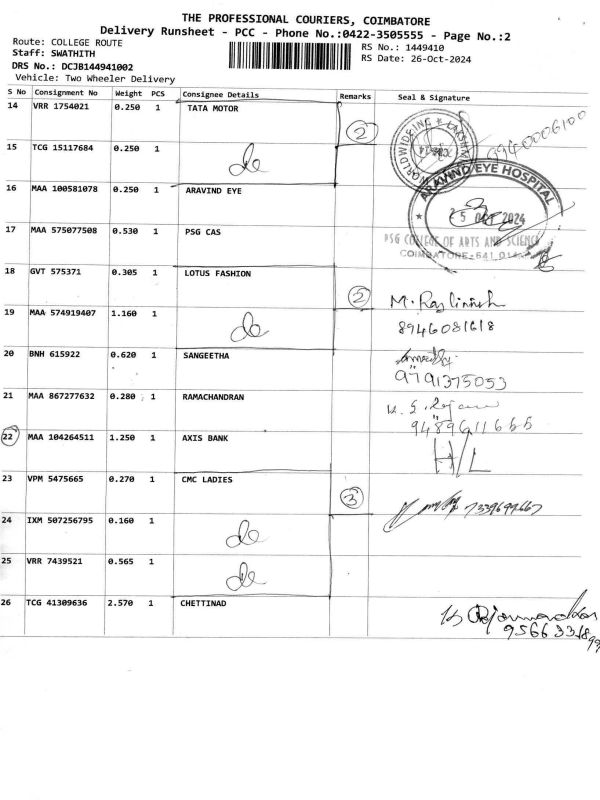 THE PROFESSIONAL COURIERS, COIMBATORE
Delivery Runsheet - PCC - Phone No.:0422-3505555 - Page No.:2
Route: COLLEGE ROUTE
Staff: SWATHITH
DRS No.: DCJB144941002
Vehicle: Two Wheeler Delivery
RS No.: 1449410
RS Date: 26-Oct-2024
S No Consignment No Weight PCS Consignee Details Remarks Seal & Signature
14 VRR 1754021 0.250 1 TATA MOTOR 2 9940006100
15 TCG 15117684 0.250 1 do
16 MAA 100581078 0.250 1 ARAVIND EYE
ARAVIND EYE HOSPITAL
2024
17 MAA 575077508 0.530 1 PSG CAS
PSG COLLEGE OF ARTS AND SCIENCE
COIMBATORE-641 014
18 GVT 575371 0.305 1 LOTUS FASHION 2
19 MAA 574919407 1.160 1 do 8946081618
20 BNH 615922 0.620 1 SANGEETHA
9791375053
21 MAA 867277632 0.280 1 RAMACHANDRAN
9489611666
22 MAA 104264511 1.250 1 AXIS BANK H/L
23 VPM 5475665 0.270 1 CMC LADIES 3 7339699667
24 IXM 507256795 0.160 1 do
25 VRR 7439521 0.565 1 do
26 TCG 41309636 2.570 1 CHETTINAD